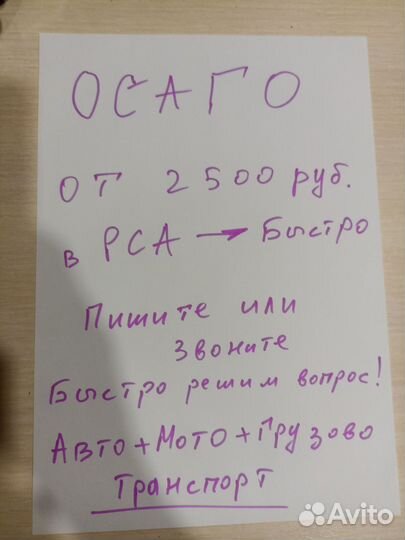 ОСАГО
от 2500 руб.
в РСА → Быстро
Пишите или
звоните
Быстро решим вопрос!
Авто+Мото+Грузово
Транспорт
Avito